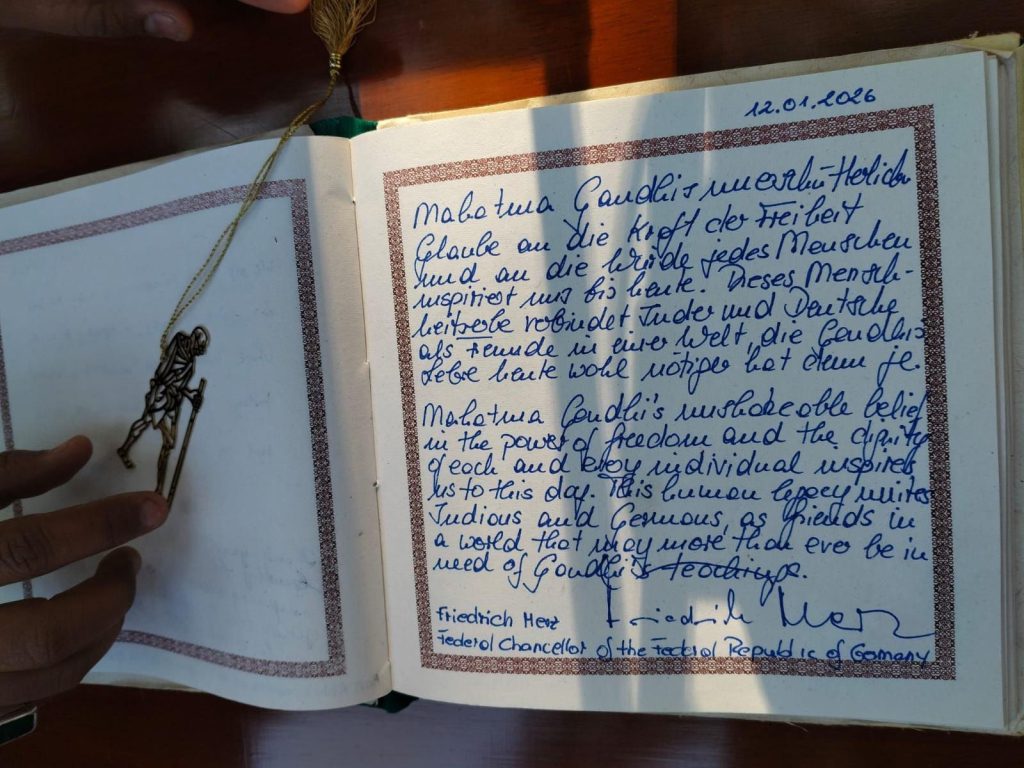 12.01.2026
Mahatma Gandhi's unerschütterlicher
Glaube an die Kraft der Freiheit
und an die Würde jedes Menschen
inspiriert uns bis heute. Dieses Mensch-
heitserbe verbindet Inder und Deutsche
als Freunde in einer Welt, die Gandhis
Lehre heute wohl nötiger hat denn je.
Mahatma Gandhi's unshakeable belief
in the power of freedom and the dignity
of each and every individual inspires
us to this day. This human legacy unites
Indians and Germans, as friends in
a world that may more than ever be in
need of Gandhi's teachings.
Friedrich Merz
Friedrich Merz
Federal Chancellor of the Federal Republic of Germany